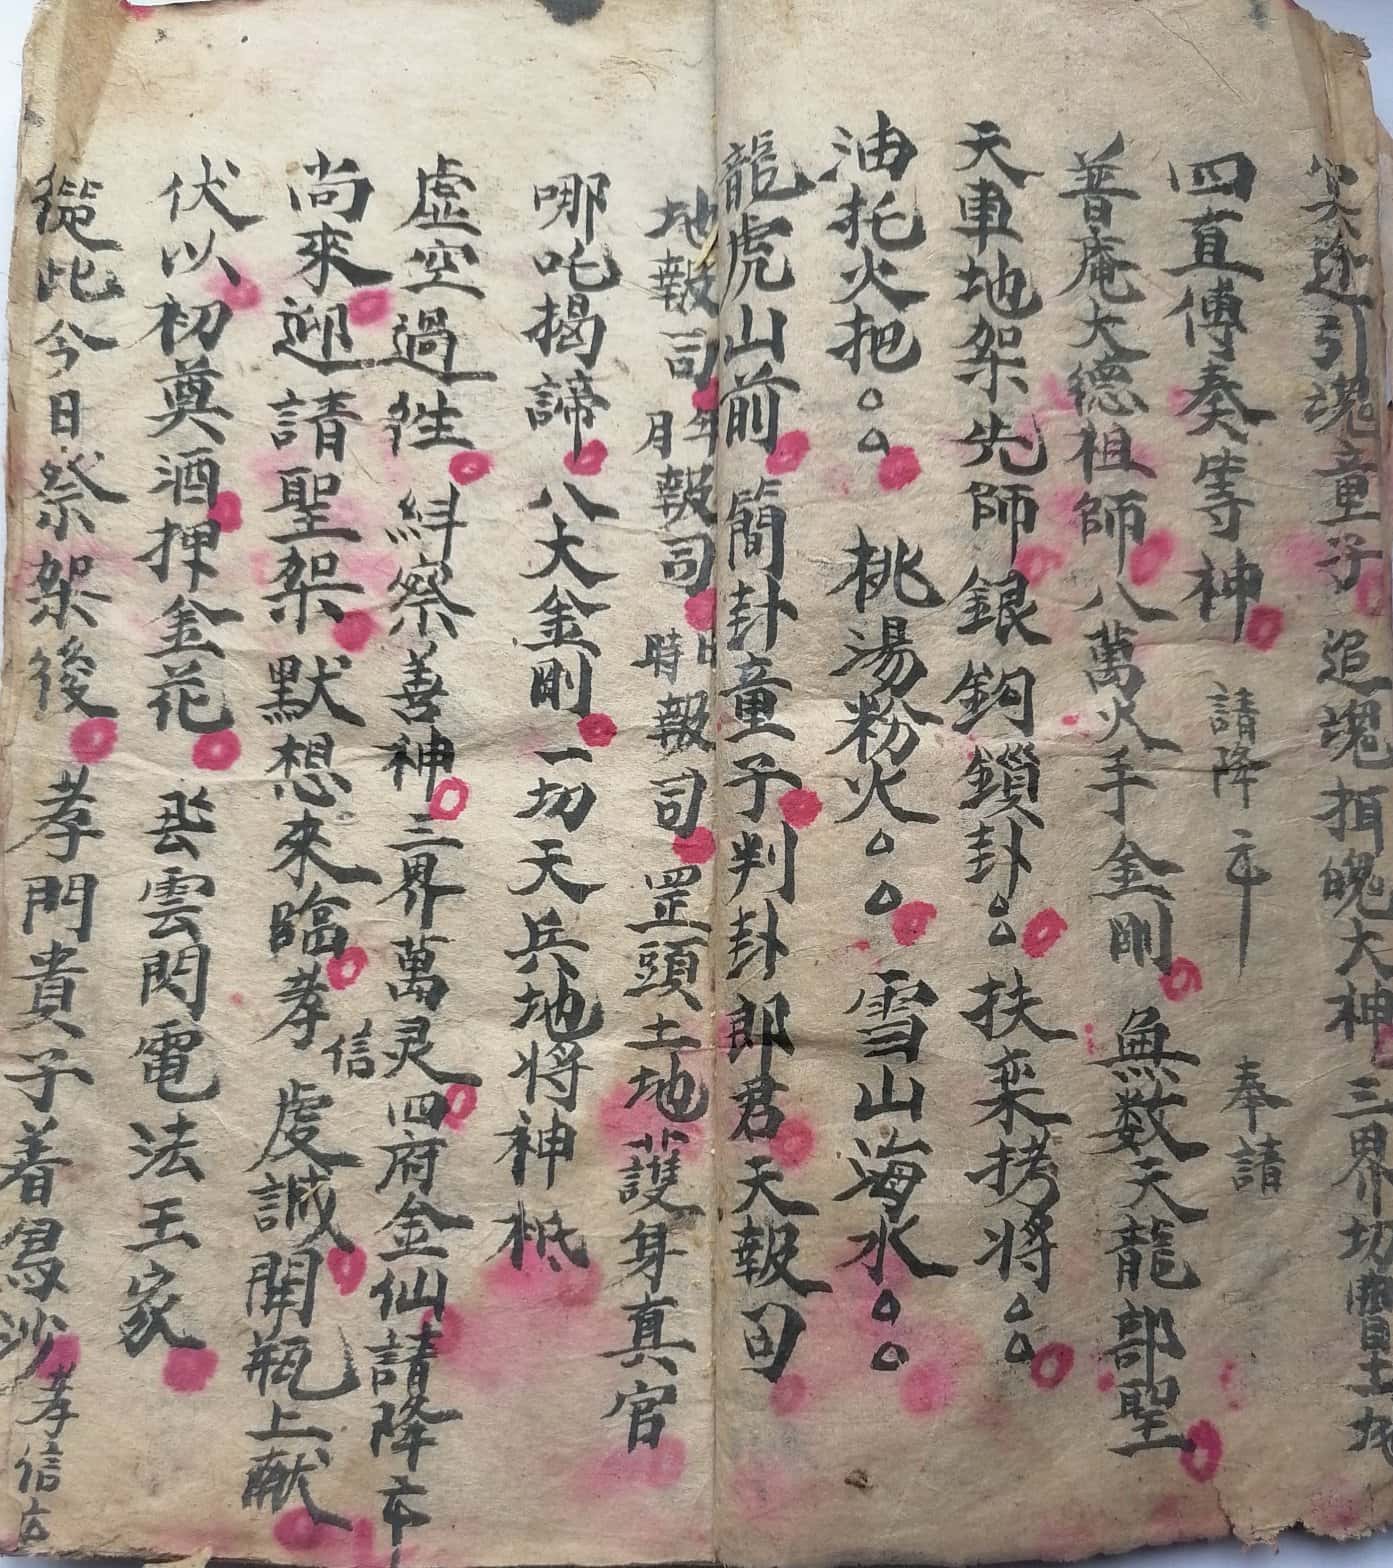 冥途引魂童子追魂押魄大神三界切灶里土地
四直傳奏等神 請降 奉請
普庵大德祖師八萬火手金剛無数天龍部聖
天車地架先師銀鈎鎖封扶桒拷將
油托火把 桃湯粉火 雪山海水
龍虎山前簡卦童子判卦郎君天報司
地報司年月報司日時報司罡頭土地護身真官
哪吒揭諦八大金剛一切天兵地将神祇
虛空過往糾察善神三界萬灵四府金仙請降
尚來迎請聖架默想來臨孝信虔誠開瓶上献
伏以初奠酒押金花㳀雲閃電法王家
從此今日祭架後孝門貴子着烏沙孝信